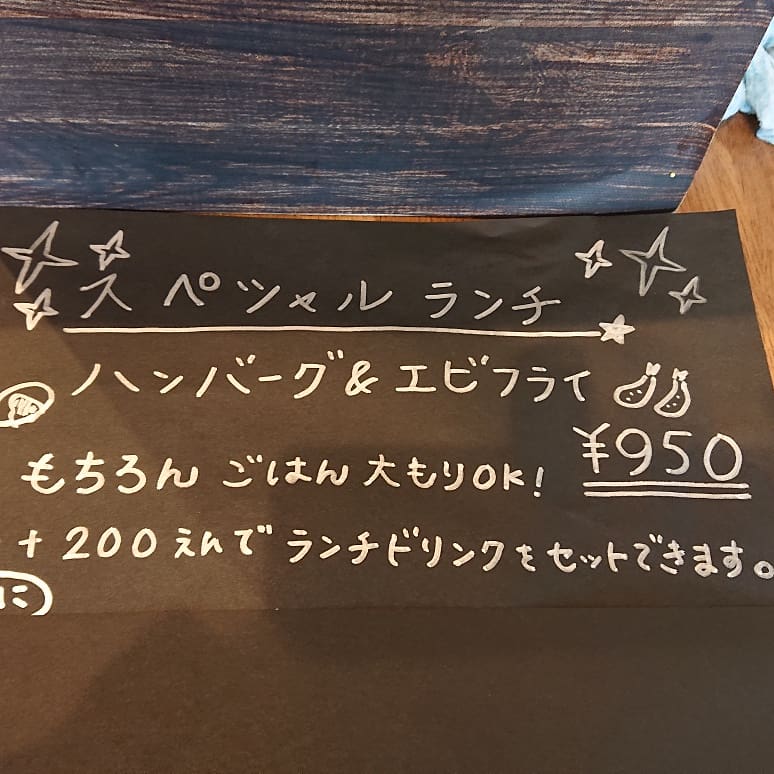 スペシャル ランチ
ハンバーグ&エビフライ
¥950
もちろん ごはん 大もりOK!
+200えんで ランチドリンクをセットできます。
に